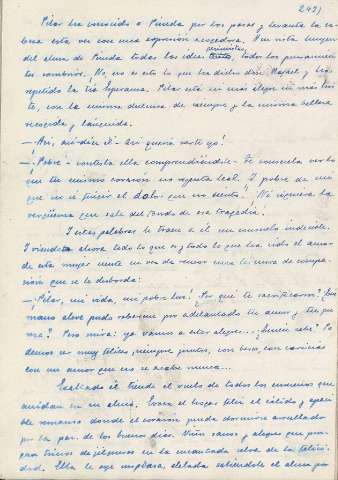 242)
Pilar ha conocido a Pineda por los pasos y levanta la ca-
beza esta vez con una expresión acogedora. Su vista limpia
del alma de Pineda todas las ideas pesimistas, todos los pensamien-
tos sombríos. No, no es esto lo que ha dicho don Rafael y ha
repetido la tía Esperanza. Pilar está ni más alegre ni más tris-
te, con la misma dulzura de siempre y la misma belleza
recogida y lánguida.
—Así, así—dice él—. Así quería verte yo!
—¡Pobre!—contesta ella comprendiéndole—. Te consuela verme
que tu mismo corazón no aguanta leal. Y pobre de mí
que no sé fingir el dolor que no siento! Ni siquiera la
vergüenza que sale del fondo de esa tragedia.
Y estas palabras le traen a él un consuelo indecible.
Y viendo ahora todo lo que es y todo lo que ha sido el amor
de esta mujer siente en vez de rencor una ternura de compa-
sión que se le desborda:
—Pilar, mi vida, mi pobre luz! ¿Por qué te sacrificaron? ¿Qué
mano aleve pudo robar que por adelantado tu amor y tu
alma? Pero mira: ya vamos a estar alegres... ¿Quién sabe? Po-
demos ser muy felices, siempre juntos, con besos, con caricias
con un amor que no se acabe nunca...
Exaltado él tiende el vuelo de todos los ensueños que
anidan en su alma. Evoca el hogar feliz, el cálido y apaci-
ble remanso donde el corazón pueda dormirse arrullado
por la paz de los buenos días. Niños sanos y alegres que pon-
gan trinos de jilgueros en la encantada selva de la felici-
dad. Ella le oye implosa, elevada subiéndole el alma por